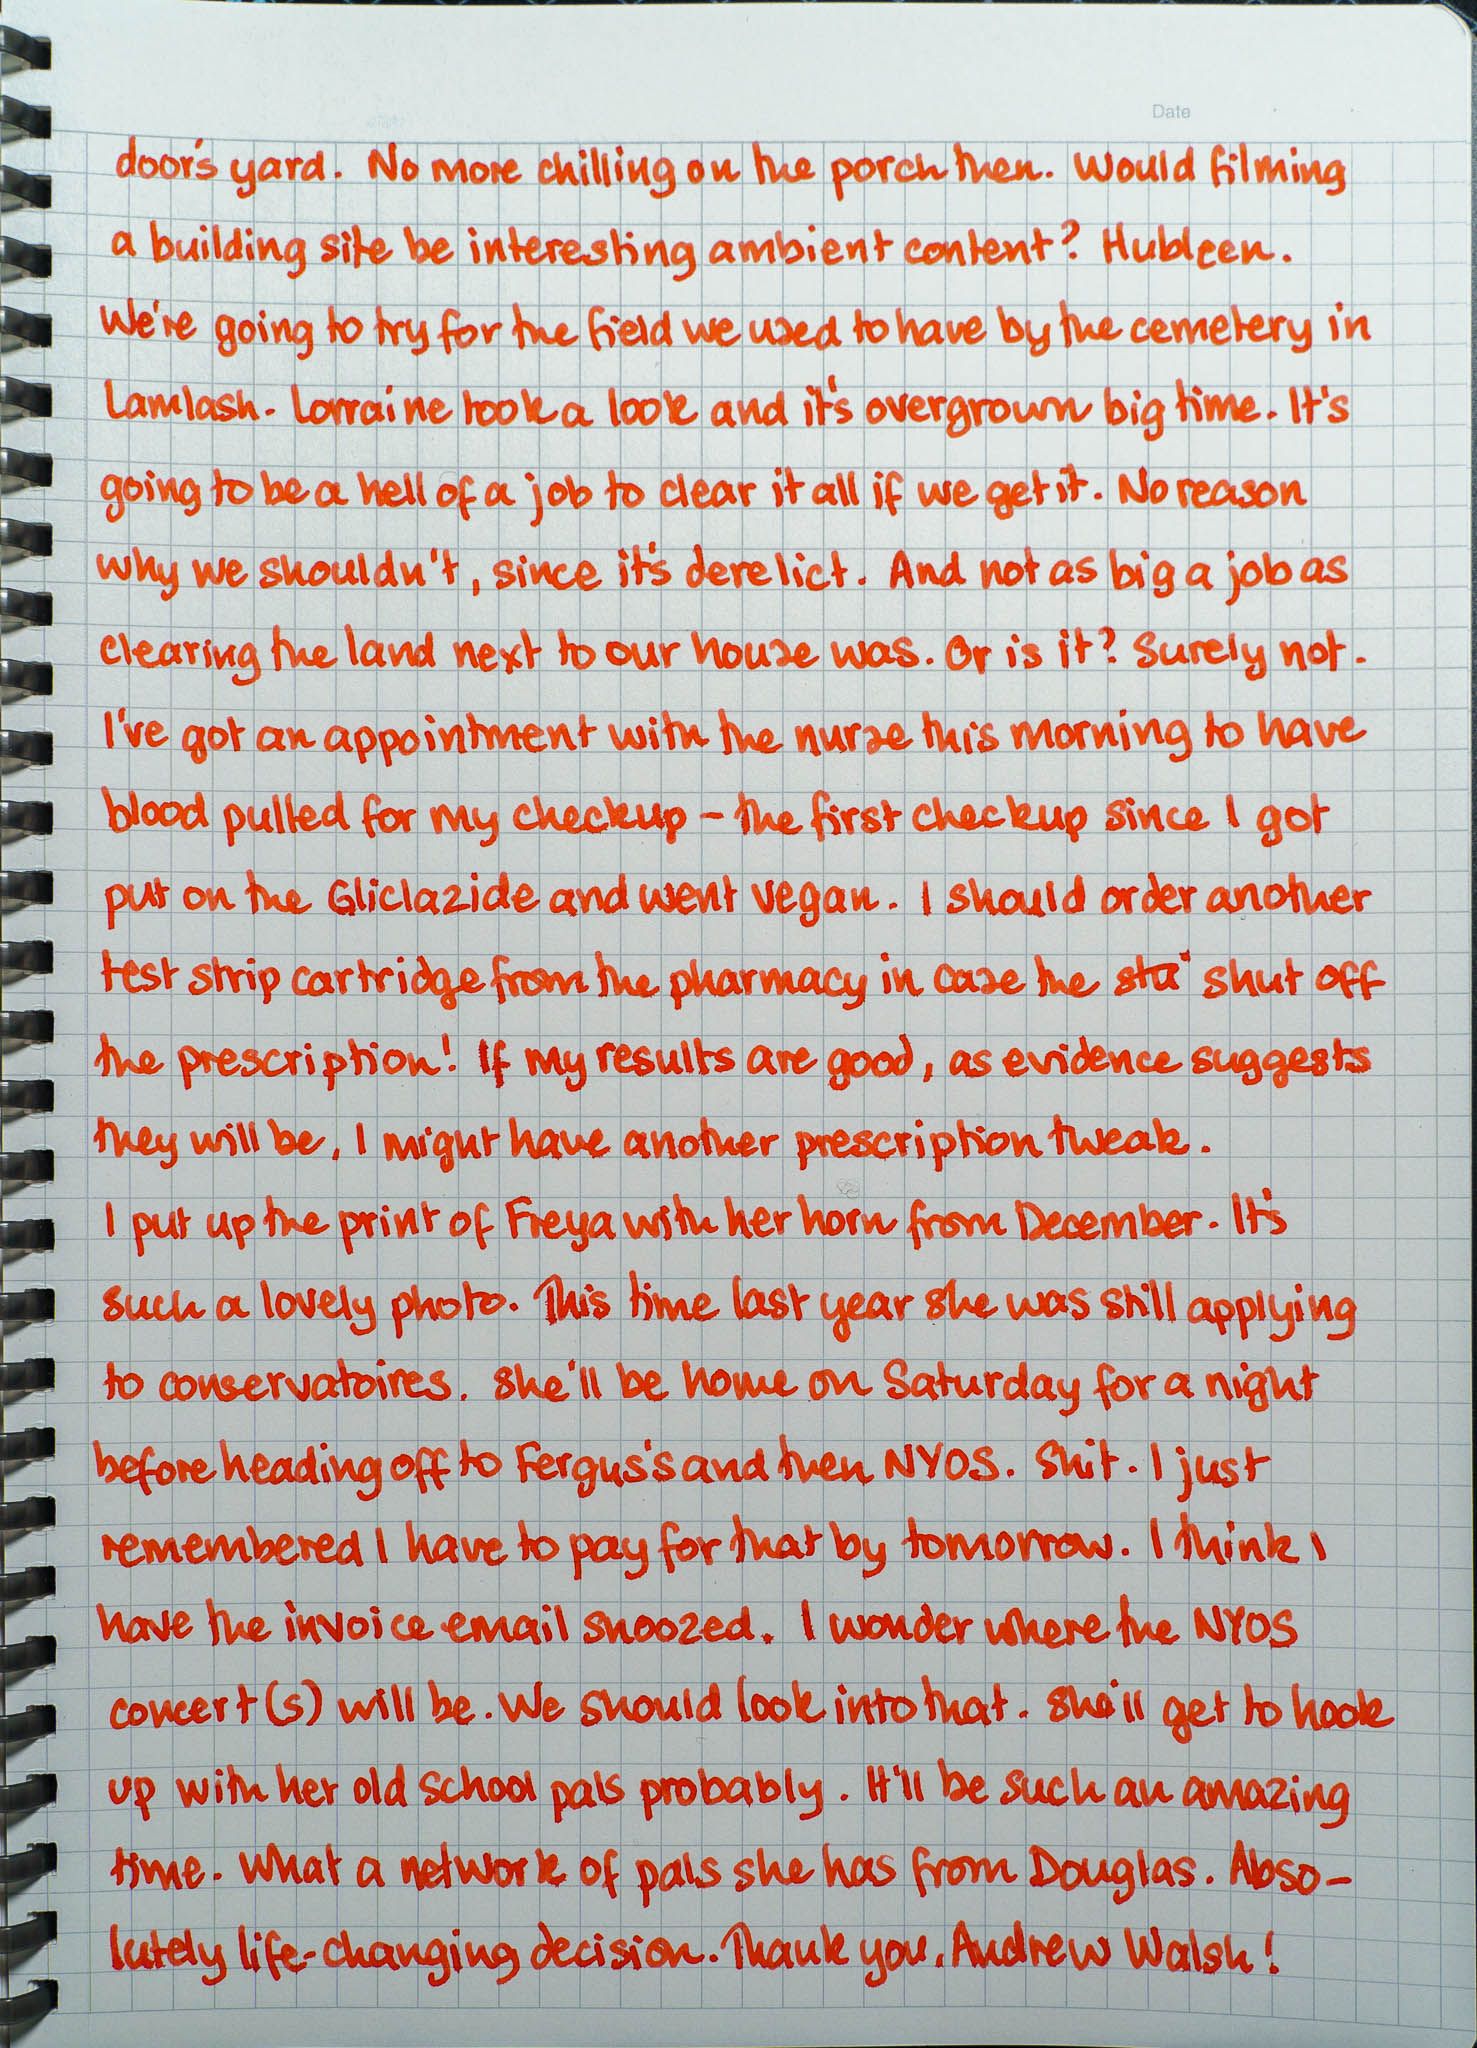 Date
door's yard. No more chilling on the porch then. Would filming
a building site be interesting ambient content?
We're going to try for the field we used to have by the cemetery in
Lamlash. Lorraine took a look and it's overgrown big time. It's
going to be a hell of a job to clear it all if we get it. No reason
why we shouldn't, since it's derelict. And not as big a job as
clearing the land next to our house was. Or is it? Surely not.
I've got an appointment with the nurse this morning to have
blood pulled for my checkup – the first checkup since I got
put on the Gliclazide and went vegan. I should order another
test strip cartridge from the pharmacy in case the shut off
the prescription! If my results are good, as evidence suggests
they will be, I might have another prescription tweak.
I put up the print of Freya with her horn from December. It's
such a lovely photo. This time last year she was still applying
to conservatoires. She'll be home on Saturday for a night
before heading off to Fergus's and then NYOS. Shit. I just
remembered I have to pay for that by tomorrow. I think I
have the invoice email snoozed. I wonder where the NYOS
concert(s) will be. We should look into that. She'll get to hook
up with her old school pals probably. It'll be such an amazing
time. What a network of pals she has from Douglas. Abso-
lutely life-changing decision. Thank you, Andrew Walsh!